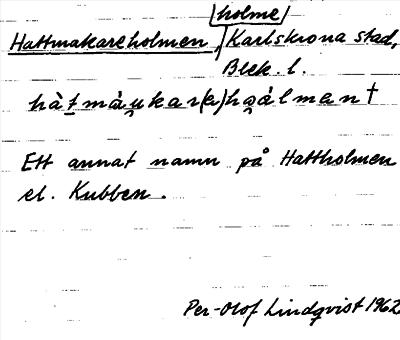 holme
Hattmakareholmen, Karlskrona stad,
Blek. l.
Ett annat namn på Hattholmen
el. Kubben.
Per-Olof Lindqvist 1962